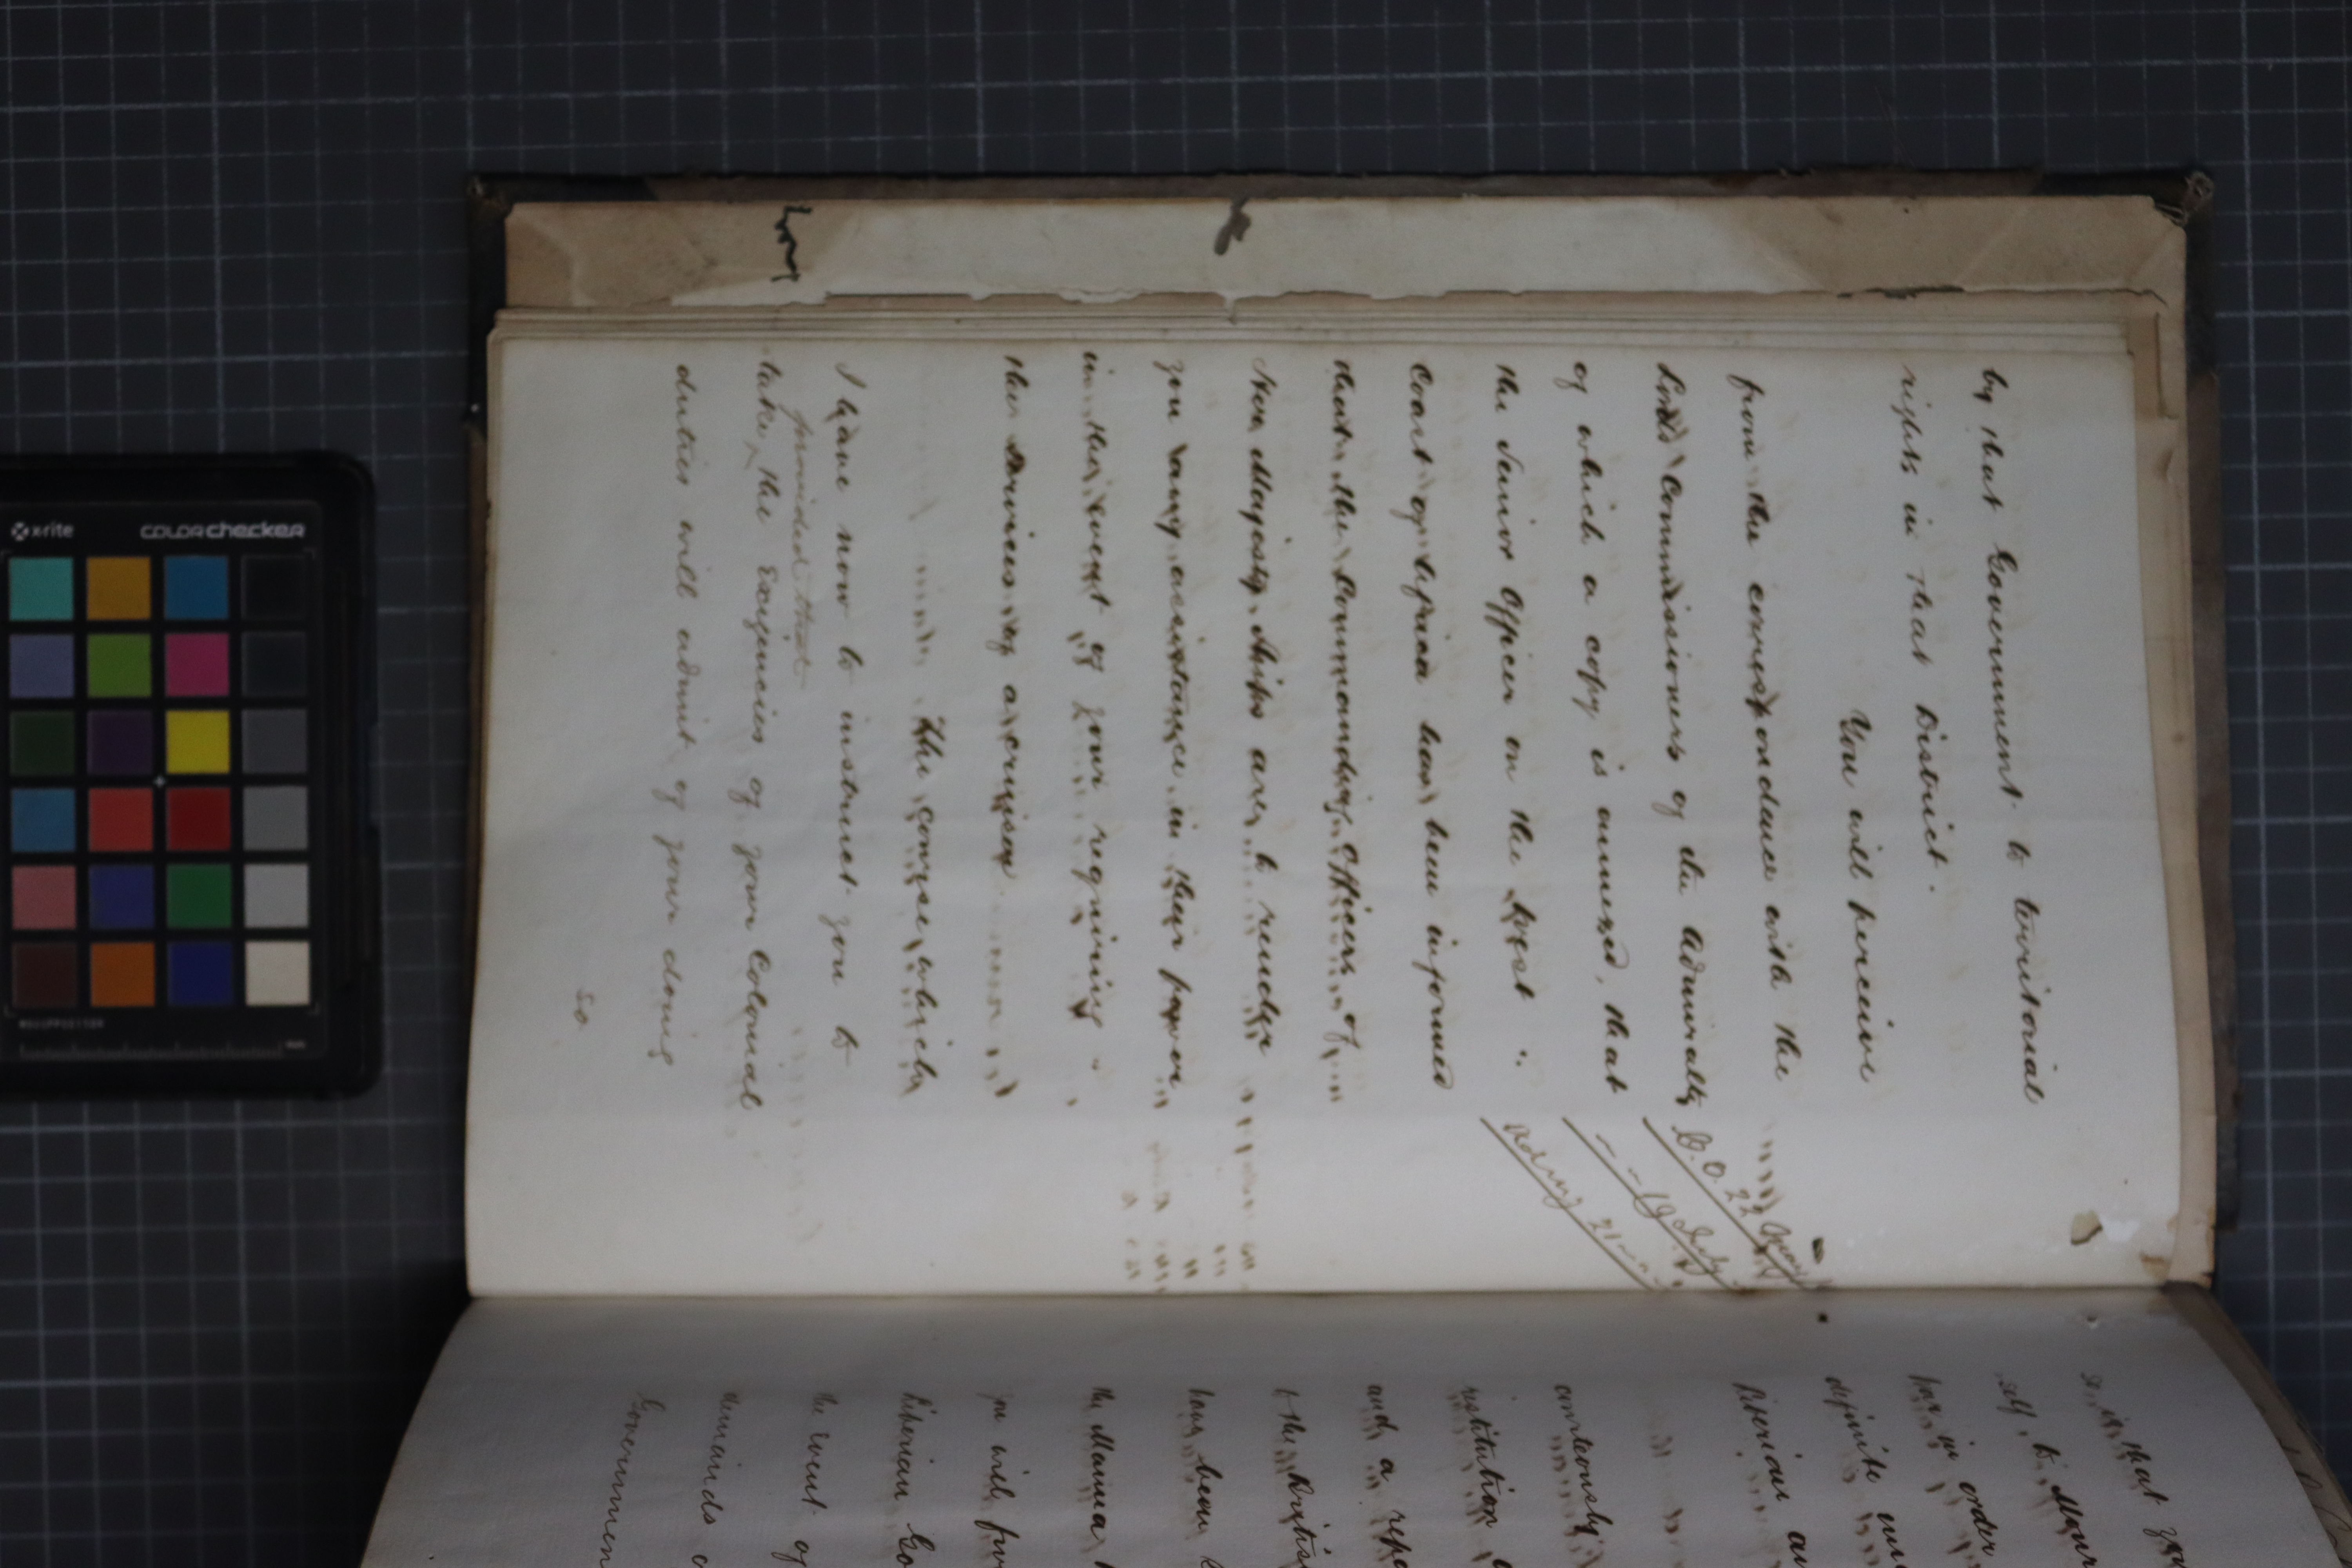 by that Government to territorial
rights in that District.
You will perceive
from the correspondence with the
Lords Commissioners of the Admiralty
C.O. 22
of which a copy is annexed, that
19 July
the Senior Officer on the West
Admy 21
Coast of Africa has been informed
that the Commanding Officers of
Her Majesty's Ships are to render
you any assistance in their power
in the event of your requiring
the Services of a cruiser
The course which
I have now to instruct you to
provided that
take, the Exigencies of your Colonial
duties will admit of your doing
so
so, is that
self, to
in order
definite
Liberian
conteously
restitution
and a
to the British
have been
the Manna
you will
Liberian
the event of
demands
Government
x-rite
colorchecker